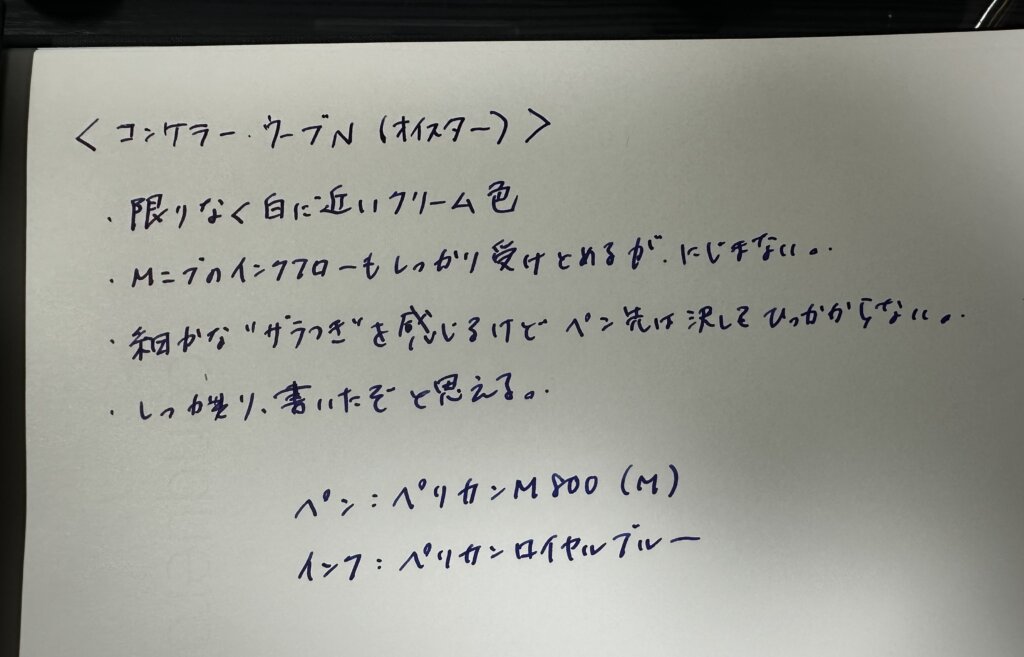 ＜コンケラー・ウーブN（オイスター）＞
・限りなく白に近いクリーム色
・Mニブのインクフローもしっかり受けとめるが、にじまない。
・細かな“ザラつき”を感じるけどペン先は決してひっかからない。
・しっかり、書いたぞと思える。
ペン：ペリカンM800（M）
インク：ペリカンロイヤルブルー